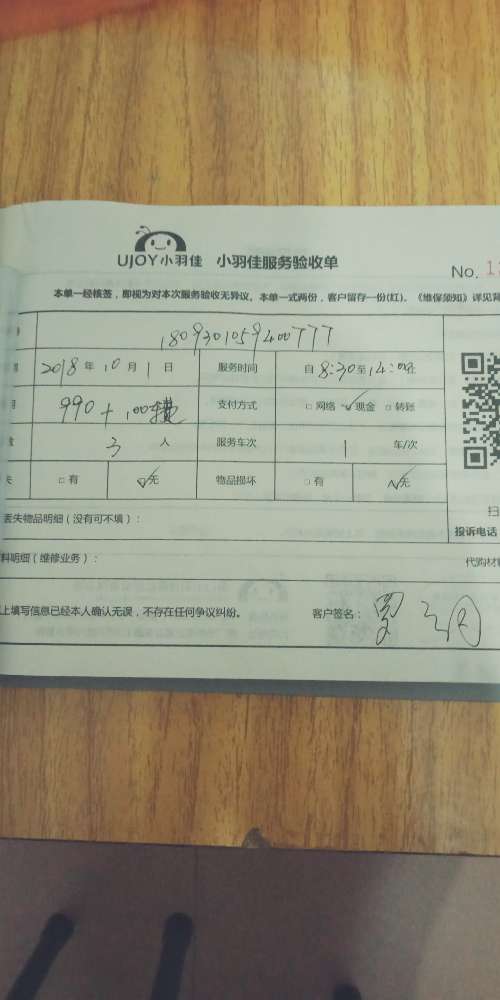 UJOY小羽佳 小羽佳服务验收单
No. 1
本单一经核签，即视为对本次服务验收无异议。本单一式两份，客户留存一份(红)。《维保须知》详见背
1809301059400777
2018年10月1日 服务时间 自8:30至14:00止
990+100 支付方式 □网络 ✓现金 □转账
3人 服务车次 1 车/次
□有 ✓无 物品损坏 □有 ✓无
扫
丢失物品明细（没有可不填）： 投诉电话
料明细（维修业务）： 代购材
上填写信息已经本人确认无误，不存在任何争议纠纷。 客户签名：